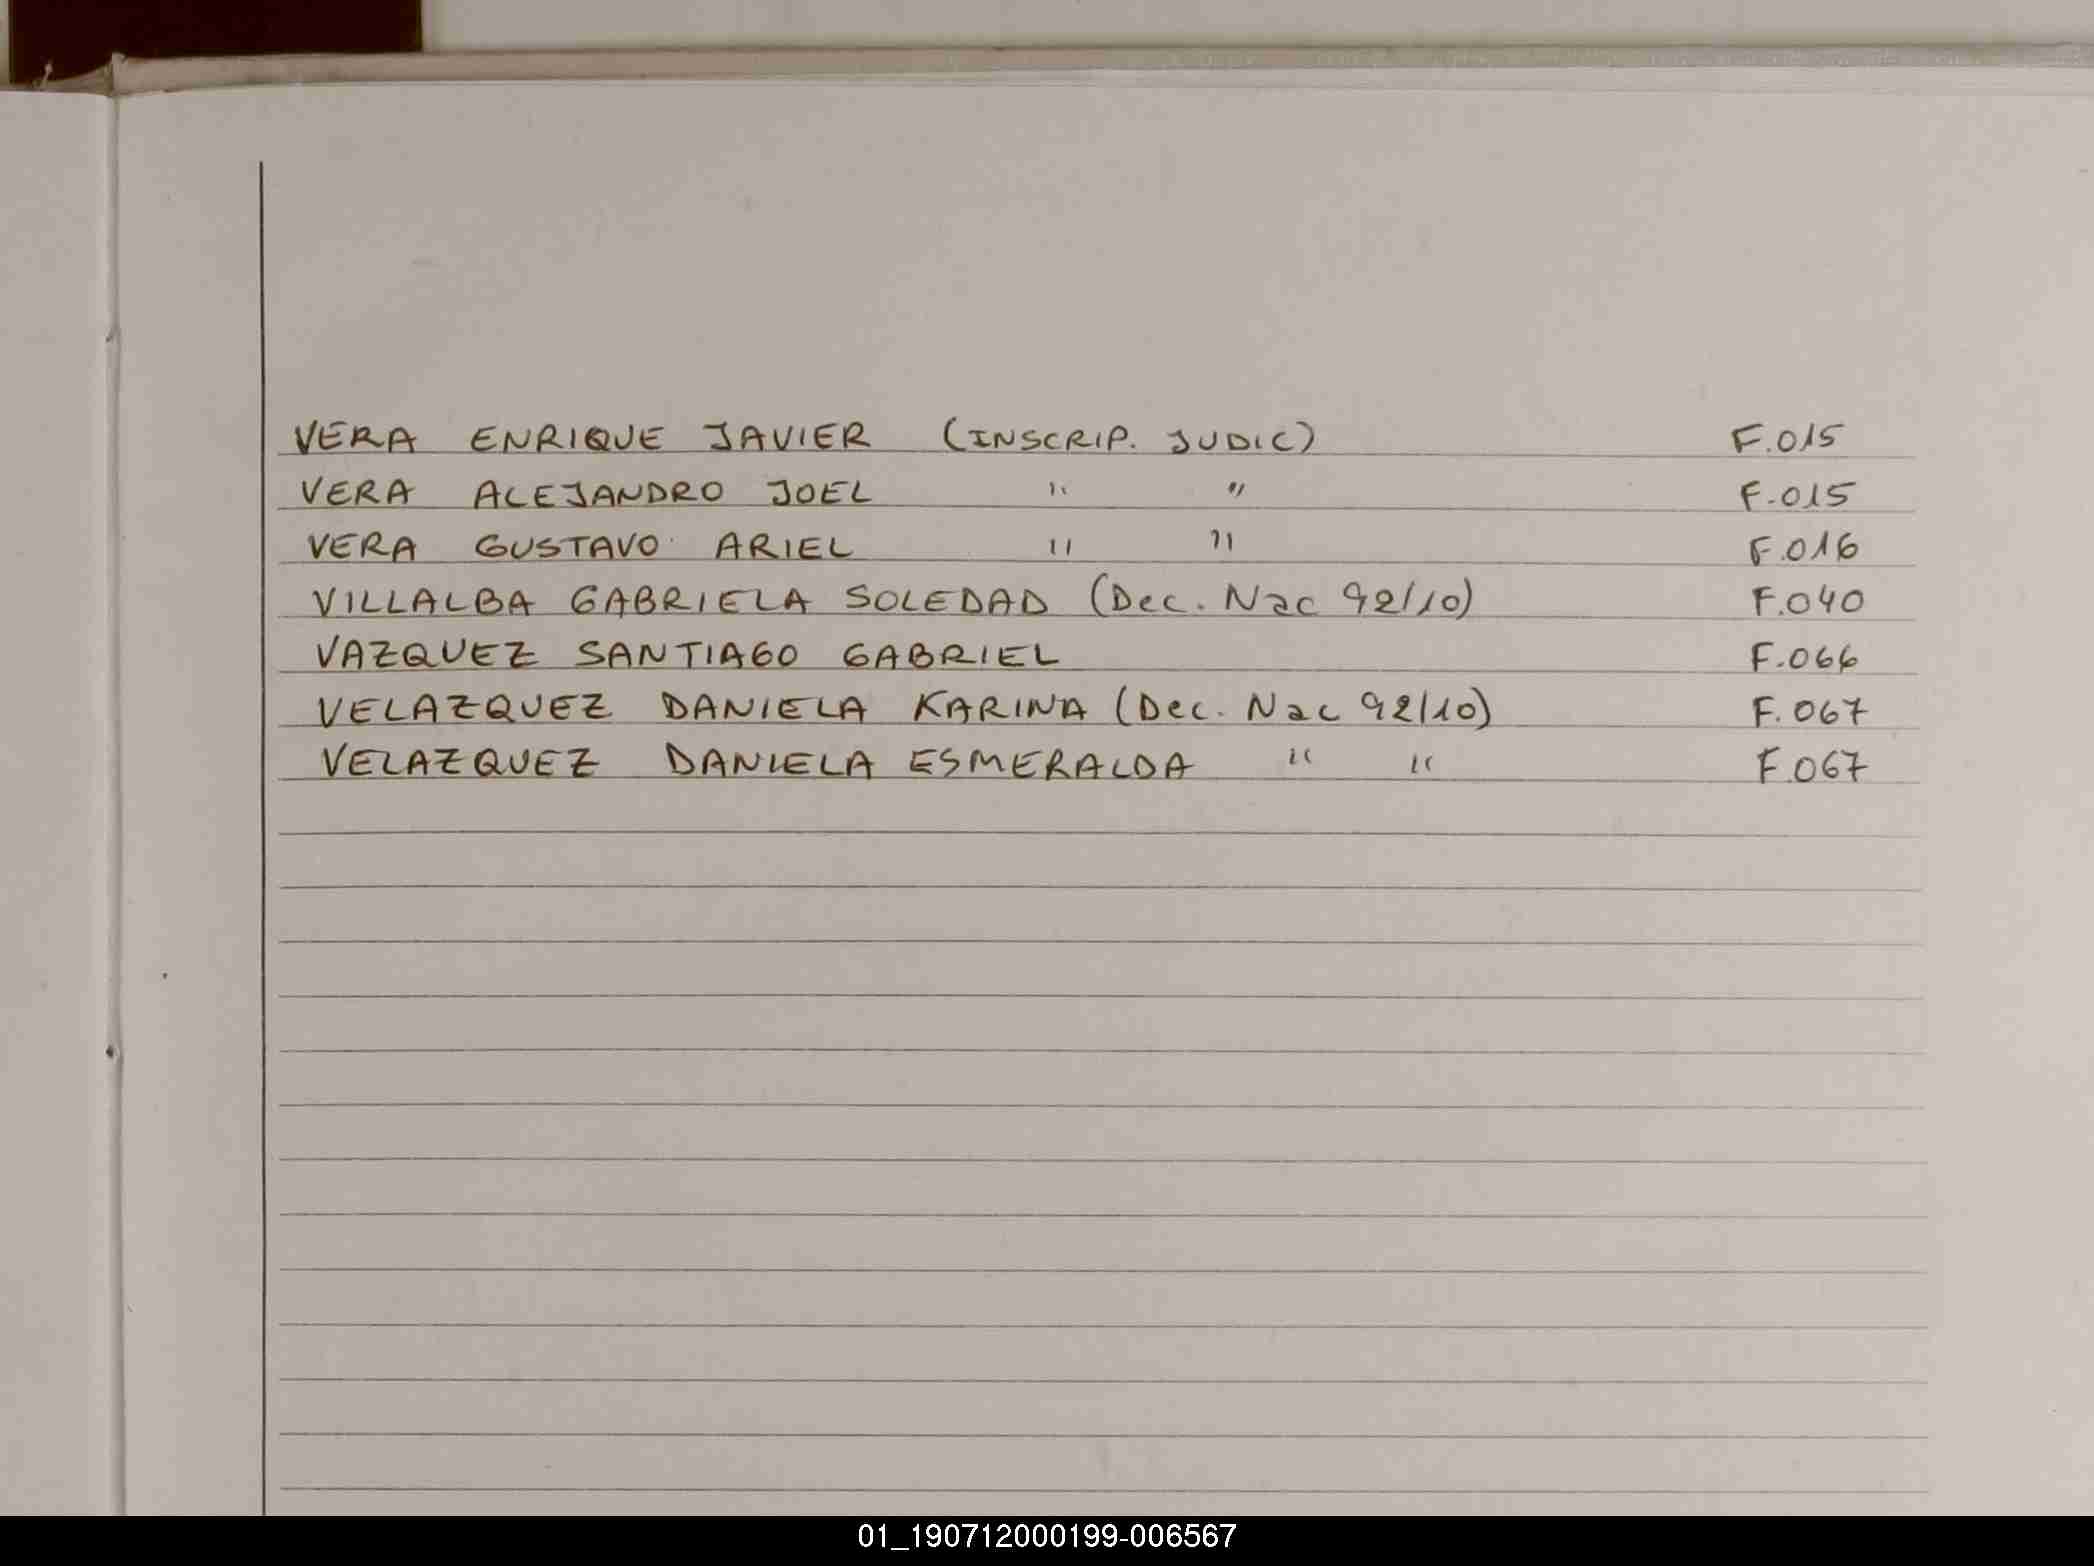 VERA ENRIQUE JAVIER (INSCRIP. JUDIC) F.015
VERA ALEJANDRO JOEL " " F.015
VERA GUSTAVO ARIEL " " F.016
VILLALBA GABRIELA SOLEDAD (Dec. Nac 92/10) F.040
VAZQUEZ SANTIAGO GABRIEL F.066
VELAZQUEZ DANIELA KARINA (Dec. Nac 92/10) F.067
VELAZQUEZ DANIELA ESMERALDA " " F.067
01_190712000199-006567